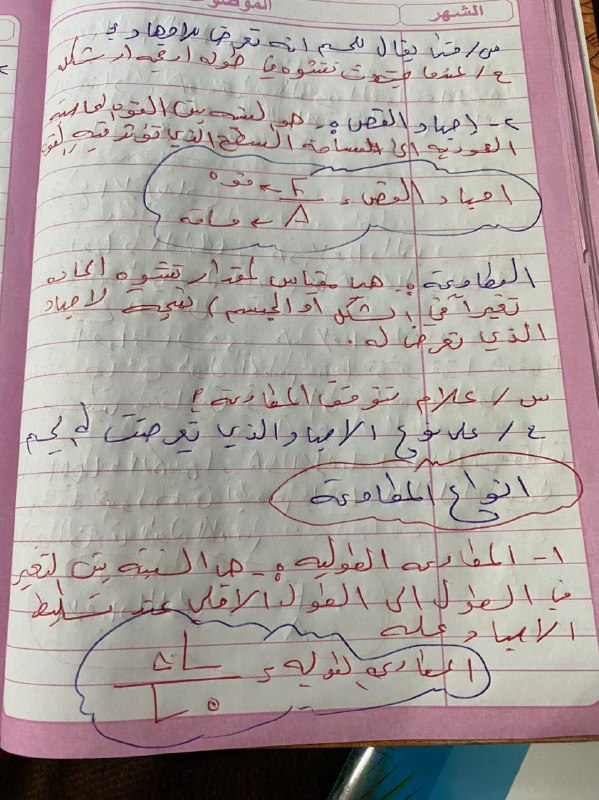 الموضوع
الشهر
س/ متى يقال للجسم انه تعرض للاجهاد؟
ج/ عندما يحدث تشوه في طوله او في شكله
٢- اجهاد القص :- هو النسبة بين القوة المماسة
العمودية الى المساحة السطح الذي تؤثر فيه القوة
اجهاد القص = F ← قوة
A ← مساحة
المطاوعة :- هي مقياس لمقدار تشوه المادة
(تغيراً في الشكل أو الجسم) نتيجة لاجهاد
الذي تعرض له .
س/ علام تتوقف المطاوعة؟
ج/ على نوع الاجهاد الذي تعرضت له الجسم
انواع المطاوعة
١- المطاوعة الطولية :- هي النسبة بين التغير
في الطول الى الطول الاصلي عند تسليط
الاجهاد عليه
المطاوعة الطولية = ΔL
L٥